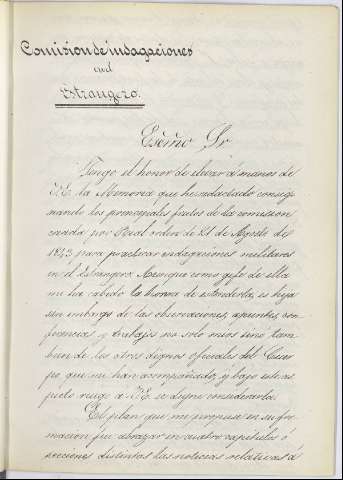 Comision de indagaciones
en el
Estrangero.
Escmo Sr
Tengo el honor de elevar á manos de
V.E. la Memoria que he redactado consig
nando los principales frutos de la comision
creada por Real orden de 21 de Agosto de
1843 para practicar indagaciones militares
en el Estrangero. Aunque como gefe de ella
me ha cabido la honra de estenderla, es hija
sin embargo de las observaciones, apuntes, con
ferencias y trabajos no solo mios sino tam
bien de los otros dignos oficiales del Cuer
po que me han acompañado, y bajo este as
pecto ruego á V.E. se digne considerarla.
El plan que me propuse en su for
macion fue abrazar en cuatro capitulos ó
secciones distintas las noticias relativas á